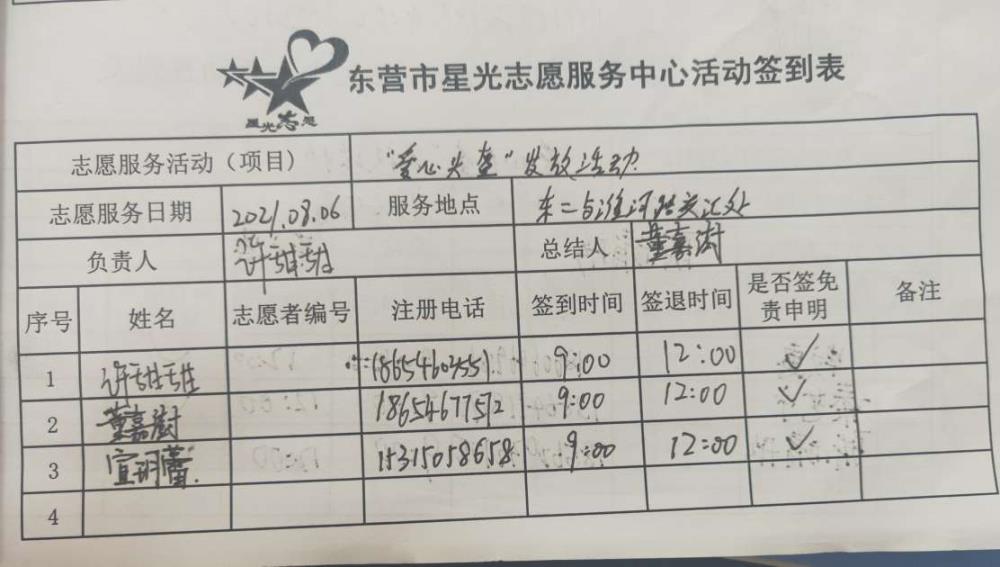 星光志愿
东营市星光志愿服务中心活动签到表
志愿服务活动（项目） “爱心头盔”发放活动
志愿服务日期 2021.08.06 服务地点 东二与淮河路交汇处
负责人 许甜甜 总结人 董嘉澍
序号 姓名 志愿者编号 注册电话 签到时间 签退时间 是否签免责申明 备注
1 许甜甜 9:00 12:00 ✓
2 董嘉澍 18654677572 9:00 12:00 ✓
3 15315058658 9:00 12:00 ✓
4